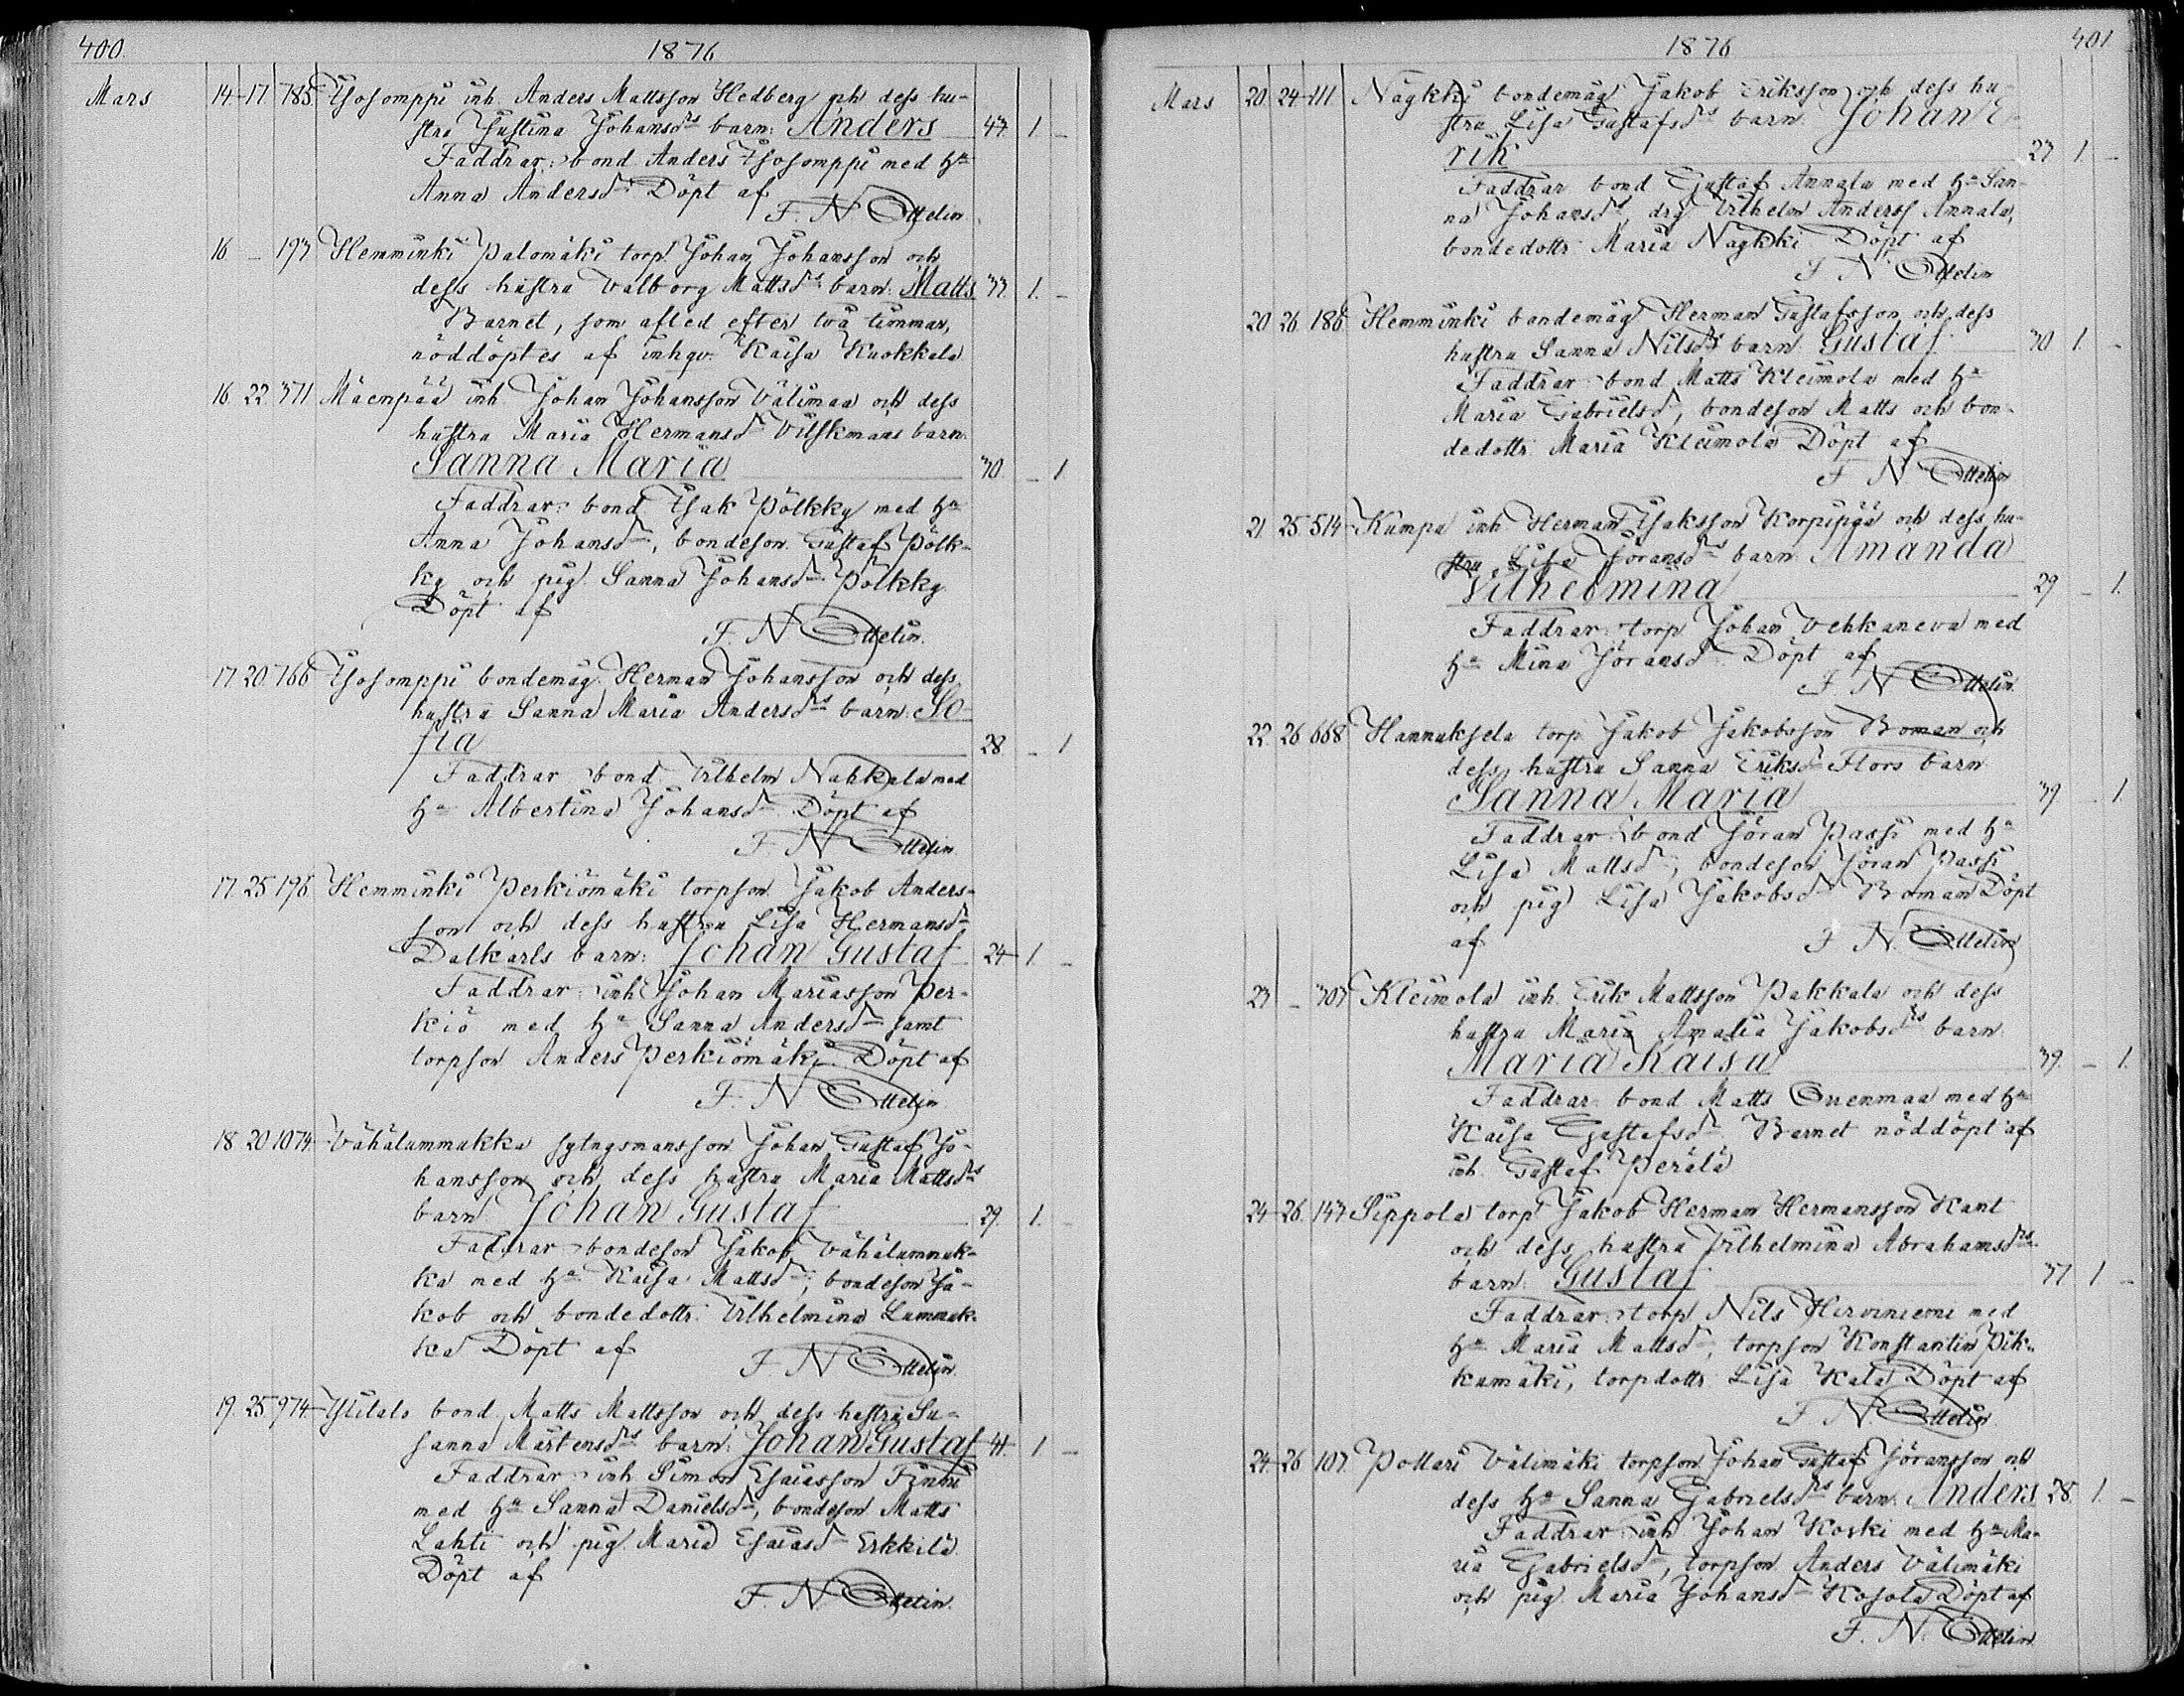 400. 1876
Mars 14 17 785 Isosomppi inh. Anders Mattsson Hedberg och dess hu-
stru Justina Johansdrs barn: Anders 43. 1. –
Faddrar: bond. Anders Isosomppi med ha
Anna Andersdr. Döpt af
F. N. Ottelin.
16 – 193 Hemminki Palomäki torp. Johan Johansson och
dess hustru Valborg Mattsdrs barn: Matts 33. 1. –
Barnet, som afled efter två timmar,
nöddöptes af inhqv. Kaisa Kuokkala
16. 22. 371 Mäenpää inh. Johan Johansson Välimaa och dess
hustru Maria Hermansdr Vilskmans barn.
Sanna Maria 30. – 1.
Faddrar: bond. Isak Pölkky med ha
Anna Johansdr, bondeson Gustaf Pölk-
ky och pig. Sanna Johansdr Pölkky.
Döpt af
F. N. Ottelin.
17. 20. 766 Isosomppi bondemåg. Herman Johansson och dess
hustru Sanna Maria Andersdrs barn: So-
fia 28. – 1
Faddrar bond. Vilhelm Nahkala med
ha Albertina Johansdr. Döpt af
F. N. Ottelin
17. 25. 196. Hemminki Perkiömäki torpson Jakob Anders-
son och dess hustru Lisa Hermansdr
Dalkarls barn: Johan Gustaf 24 1. –
Faddrar: inh. Johan Mariasson Per-
kiö med ha Sanna Andersdr samt
torpson Anders Perkiömäki. Döpt af
F. N. Ottelin
18 20 1074. Vähälummukka sytngsmansson Johan Gustaf Jo-
hansson och dess hustru Maria Mattsdrs
barn Johan Gustaf 29. 1. –
Faddrar: bondeson Jakob Vähälummuk-
ka med ha Kaisa Mattsdr, bondeson Ja-
kob och bondedottr. Vilhelmina Lummuk-
ka Döpt af
F. N. Ottelin.
19. 25 974. Ylitalo bond. Matts Mattsson och dess hustru Su-
sanna Mårtensdrs barn: Johan Gustaf 41. 1 –
Faddrar: inh. Simon Esaiasson Finni
med ha Sanna Danielsdr, bondeson Matts
Lahti och pig. Maria Esaiasdr Erkkilä.
Döpt af
F. N. Ottelin.
1876 401
Mars 20. 24 111 Nägkki bondemåg Jakob Eriksson och dess hu-
stru Lisa Gustafsdrs barn Johan E-
rik 23 1. –
Faddrar bond Gustaf Annala med ha San-
na Johansdr, drg Vilhelm Anderss Annala,
bondedottr. Maria Nägkki Döpt af
F. N. Ottelin
20 26. 186 Hemminki bondemåg Herman Gustafsson och dess
hustru Sanna Nilsdrs barn Gustaf 30 1. –
Faddrar bond Matts Kleimola med ha
Maria Gabrielsdr, bondeson Matts och bon-
dedottr. Maria Kleimola Döpt af
F. N. Ottelin
21 25. 514 Kumpa inh. Herman Isaksson Korpipää och dess hu-
stru Lisa Jöransdrs barn Amanda
Vilhelmina 29 – 1.
Faddrar: torp Johan Vehkaneva med
ha Mina Jöransdr. Döpt af
F. N. Ottelin.
22. 26 668 Hannuksela torp. Jakob Jakobsson Boman och
dess hustru Sanna Eriksdr Flors barn
Sanna Maria 39 – 1.
Faddrar: bond Jöran Passi med ha
Lisa Mattsdr, bondeson Jöran Passi
och pig Lisa Jakobsdr Boman Döpt
af F. N. Ottelin
23 – 303 Kleimola inh. Erik Mattsson Pakkala och dess
hustru Maria Amalia Jakobsdrs barn.
Maria Kaisa 39. – 1.
Faddrar. bond. Matts Suenmaa med ha
Kaisa Gustafsdr. Barnet nöddöpt af
inh. Gustaf Perälä
24 26. 143 Sippola torp Jakob Herman Hermansson Kant
och dess hustru Vilhelmina Abrahamsdrs
barn. Gustaf 37 1 –
Faddrar: torp Nils Hirviniemi med
ha Maria Mattsdr, torpson Konstantin Pih-
kamäki, torpdottr. Lisa Kala Döpt af
F. N. Ottelin
24. 26 107. Pottari Välimäki torpson Johan Gustaf Jöransson och
dess ha Sanna Gabrielsdrs barn. Anders 28. 1. –
Faddrar inh Johan Koski med ha Ma-
ria Gabrielsdr, torpson Anders Välimäki
och pig. Maria Johansdr Kosola Döpt af
F. N. Ottelin